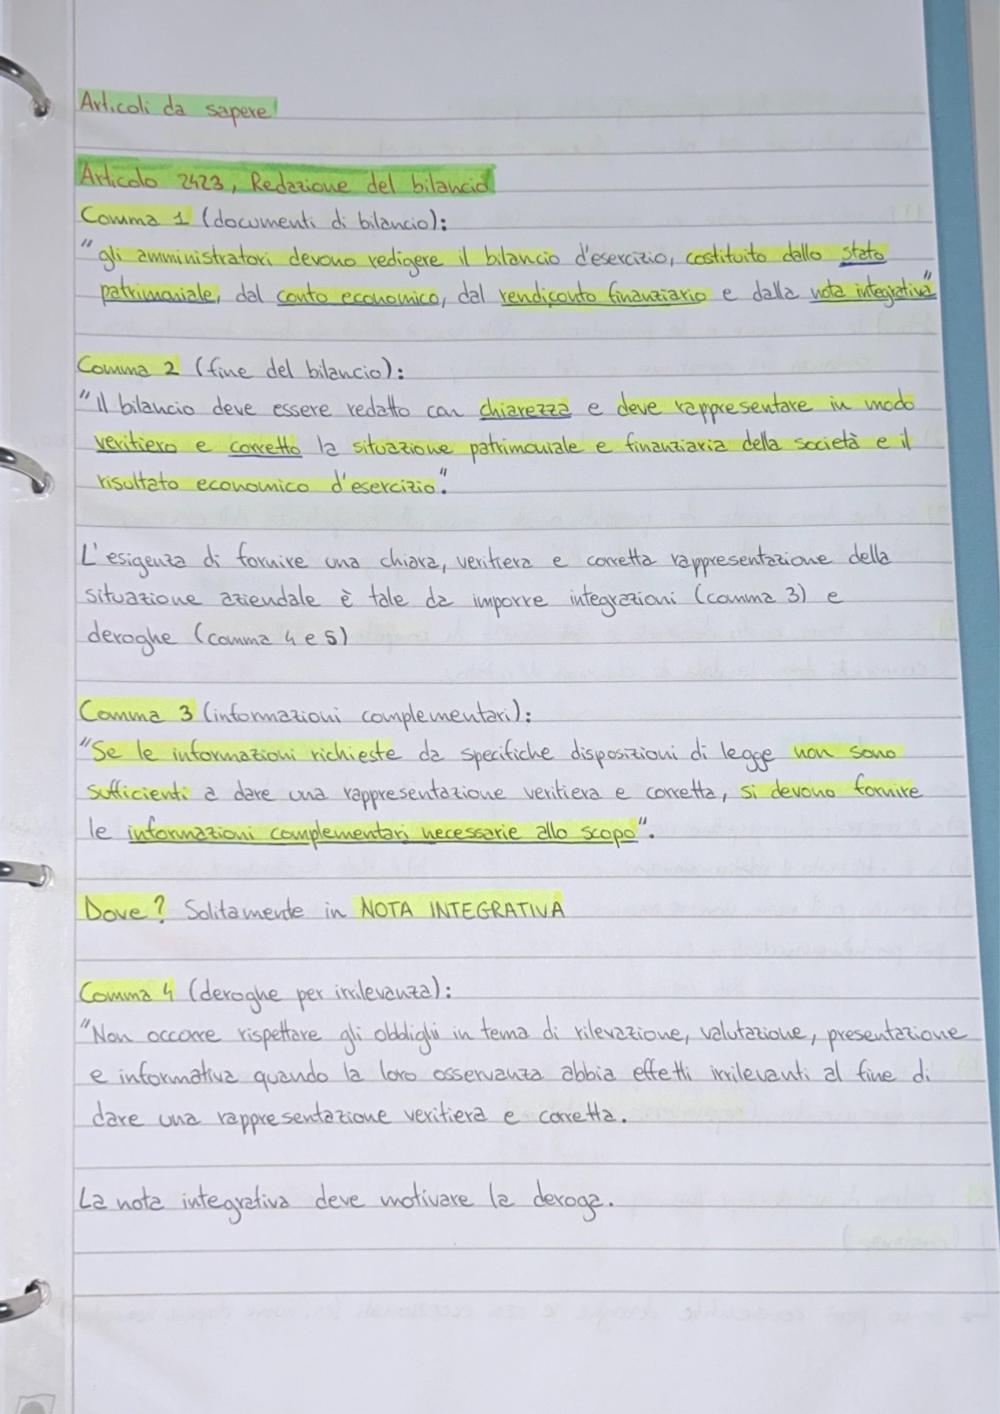 Articoli da sapere!
Articolo 2423, Redazione del bilancio
Comma 1 (documenti di bilancio):
"gli amministratori devono redigere il bilancio d'esercizio, costituito dallo stato
patrimoniale, dal conto economico, dal rendiconto finanziario e dalla nota integrativa"
Comma 2 (fine del bilancio):
"Il bilancio deve essere redatto con chiarezza e deve rappresentare in modo
veritiero e corretto la situazione patrimoniale e finanziaria della società e il
risultato economico d'esercizio".
L'esigenza di fornire una chiara, veritiera e corretta rappresentazione della
situazione aziendale è tale da imporre integrazioni (comma 3) e
deroghe (comma 4 e 5)
Comma 3 (informazioni complementari):
"Se le informazioni richieste da specifiche disposizioni di legge non sono
sufficienti a dare una rappresentazione veritiera e corretta, si devono fornire
le informazioni complementari necessarie allo scopo".
Dove? Solitamente in NOTA INTEGRATIVA
Comma 4 (deroghe per irrilevanza):
"Non occorre rispettare gli obblighi in tema di rilevazione, valutazione, presentazione
e informativa quando la loro osservanza abbia effetti irrilevanti al fine di
dare una rappresentazione veritiera e corretta.
La nota integrativa deve motivare la deroga.